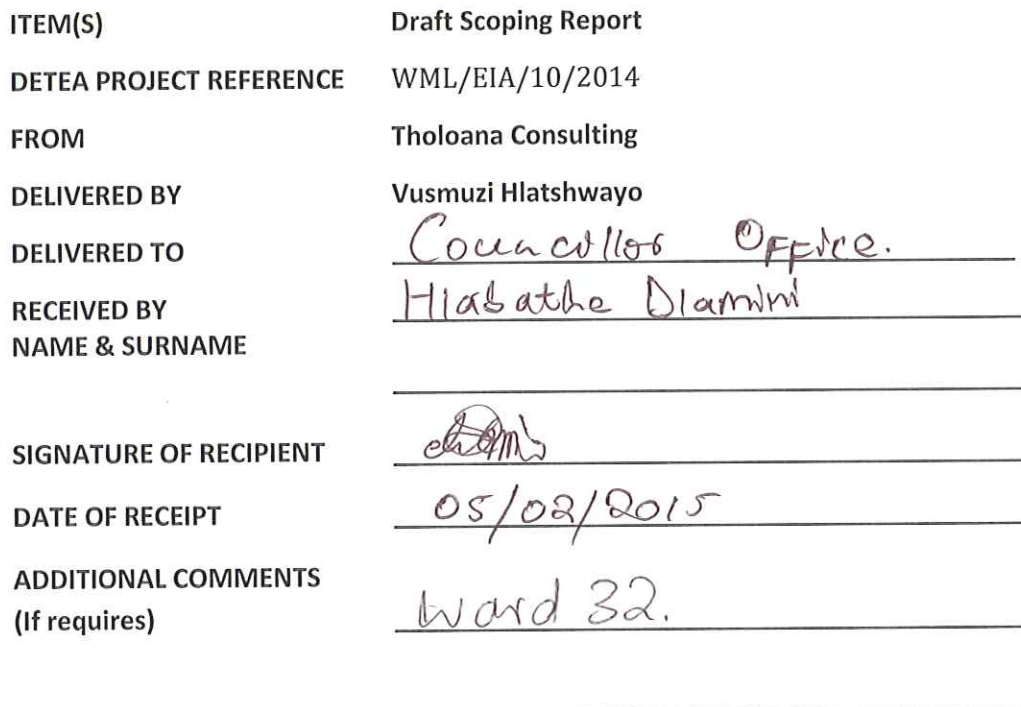 ITEM(S) Draft Scoping Report
DETEA PROJECT REFERENCE WML/EIA/10/2014
FROM Tholoana Consulting
DELIVERED BY Vusmuzi Hlatshwayo
DELIVERED TO Councillor Office.
RECEIVED BY Hlabathe Dlamini
NAME & SURNAME
SIGNATURE OF RECIPIENT
DATE OF RECEIPT 05/02/2015
ADDITIONAL COMMENTS
(If requires) Ward 32.